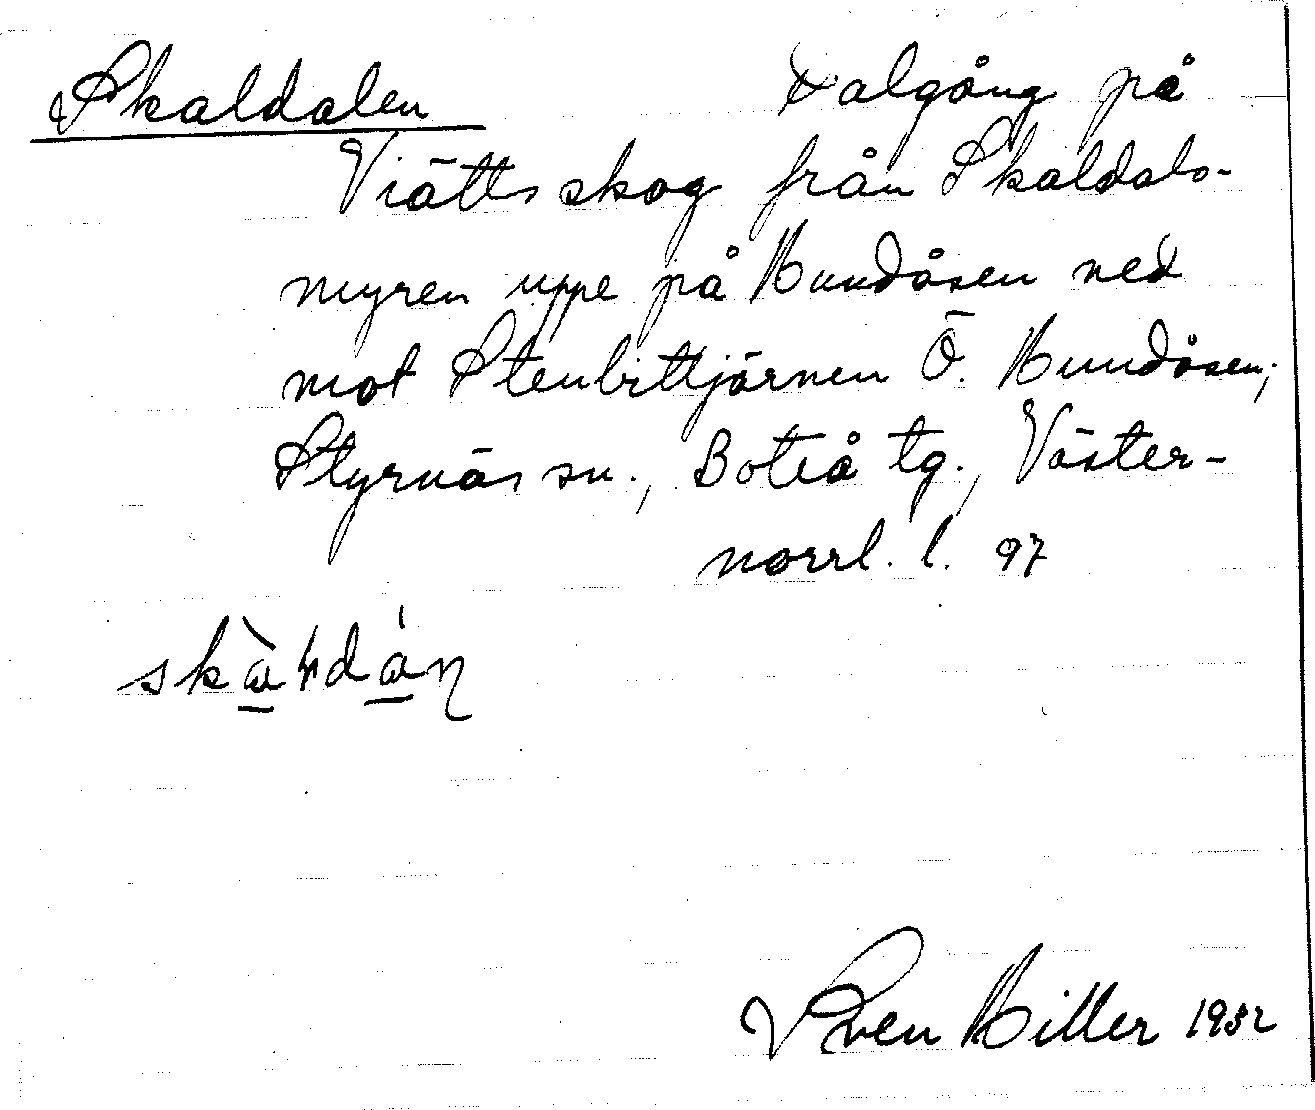 Skaldalen dalgång på
Viätts skog från Skaldals-
myren uppe på Hundåsen ned
mot Stenbittjärnen Ö. Hundåsen;
Styrnäs sn., Boteå tg., Väster-
norrl. l. 97
Sven Hiller 1932